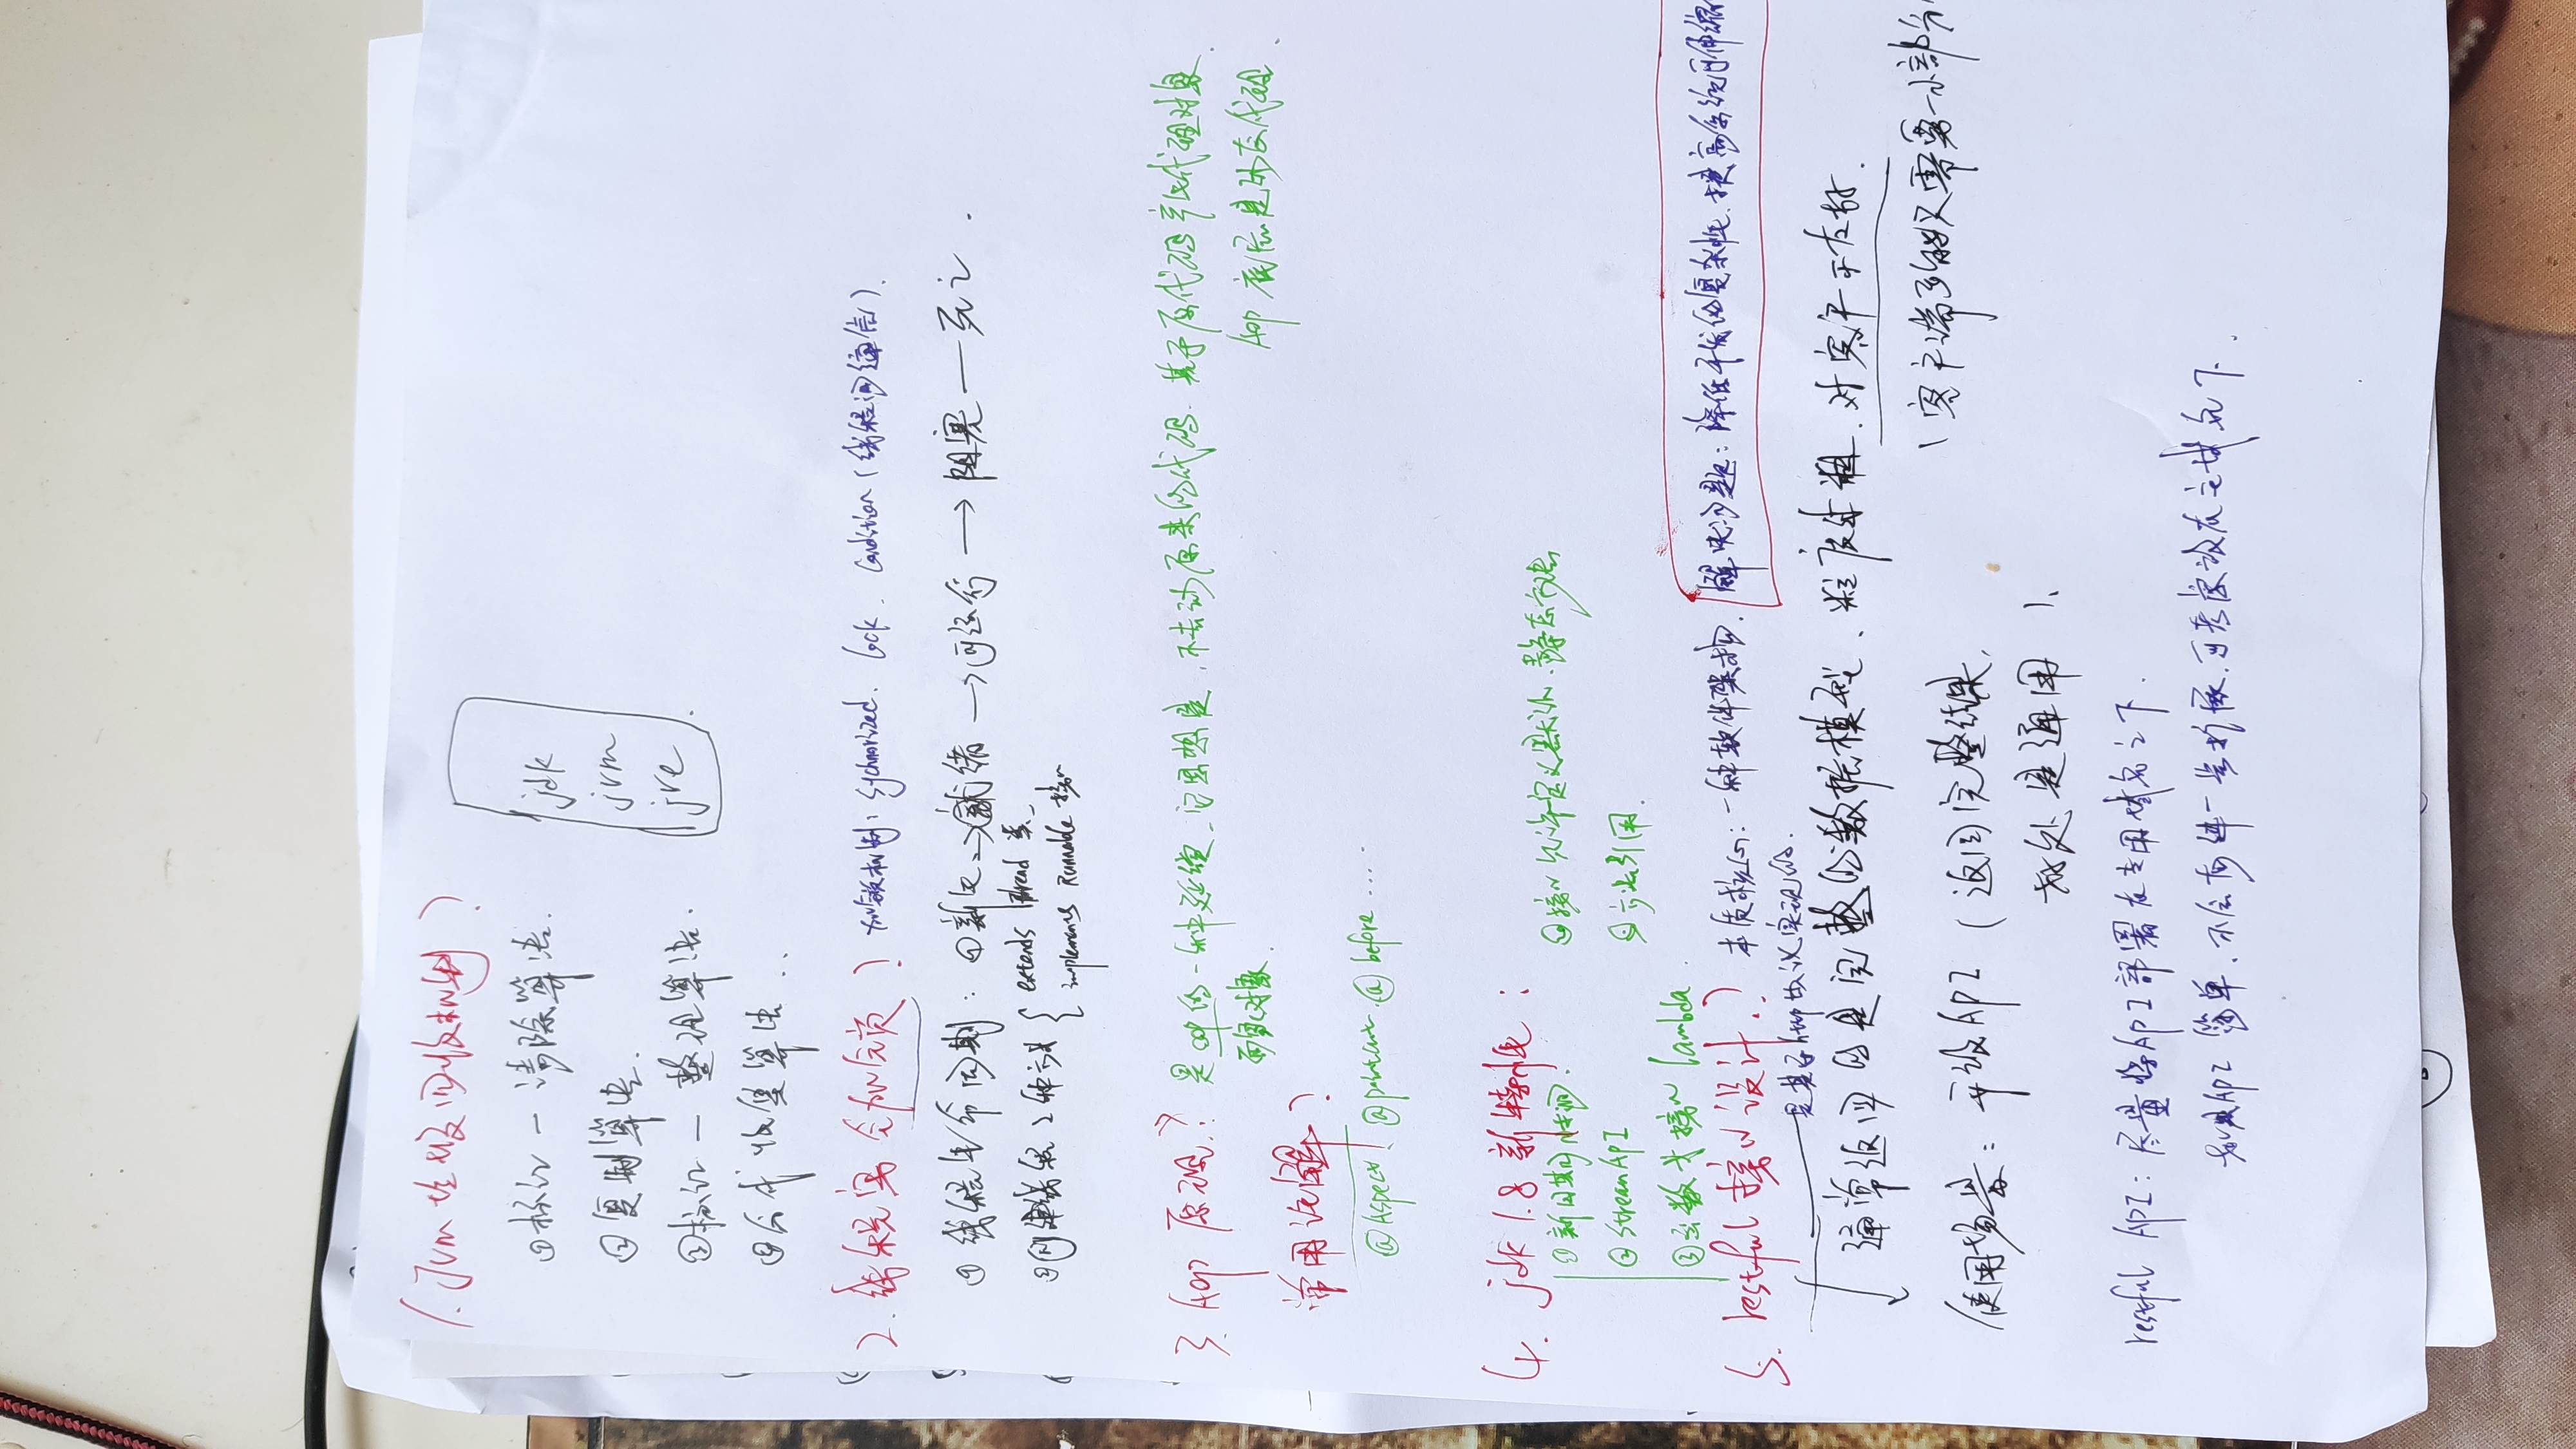 1. Jvm 垃圾回收机制?
① 标记 — 清除算法.
② 复制算法.
③ 标记 — 整理算法.
④ 分代收集算法...
jdk
jvm
jre
2. 线程安全
加锁机制: sychnorized. lock. condition (线程间通信).
① 线程生命周期: ① 新建 → 就绪 → 可运行 → 阻塞 — 死亡.
② 创建线程2种方式 { extends Thread 类
implements Runnable 接口
3. Aop 原理?
是oop的一种延续
面向对象.
不去动原来的代码. 基于原代码产生代理对象.
Aop 底层是动态代理.
常用注解?
@Aspect. @pointcut. @before ....
4. jdk 1.8 新特性:
① 新日期时间.
② StreamAPI
③ 函数式接口 lambda
④ 接口允许定义默认、静态方法
⑤ 方法引用.
5. restful 接口设计?
一种软件架构.
是基于http协议实现的.
解决问题: 降低开发的复杂性. 提高系统可伸缩
通常返回的是完整的数据模型、粒度较粗. 对客户不友好.
使用场景: 开放API (返回完整结果,
好处是通用 ).
(客户端可能只需要一小部分
restful API: 尽量将API部署在专用域名之下.
如果API 简单. 不会有进一步扩展. 可考虑放在主域名下.